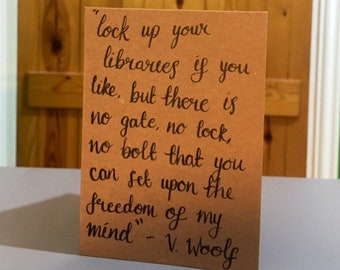 "lock up your
libraries if you
like, but there is
no gate, no lock,
no bolt that you
can set upon the
freedom of my
mind" ~ V. Woolf